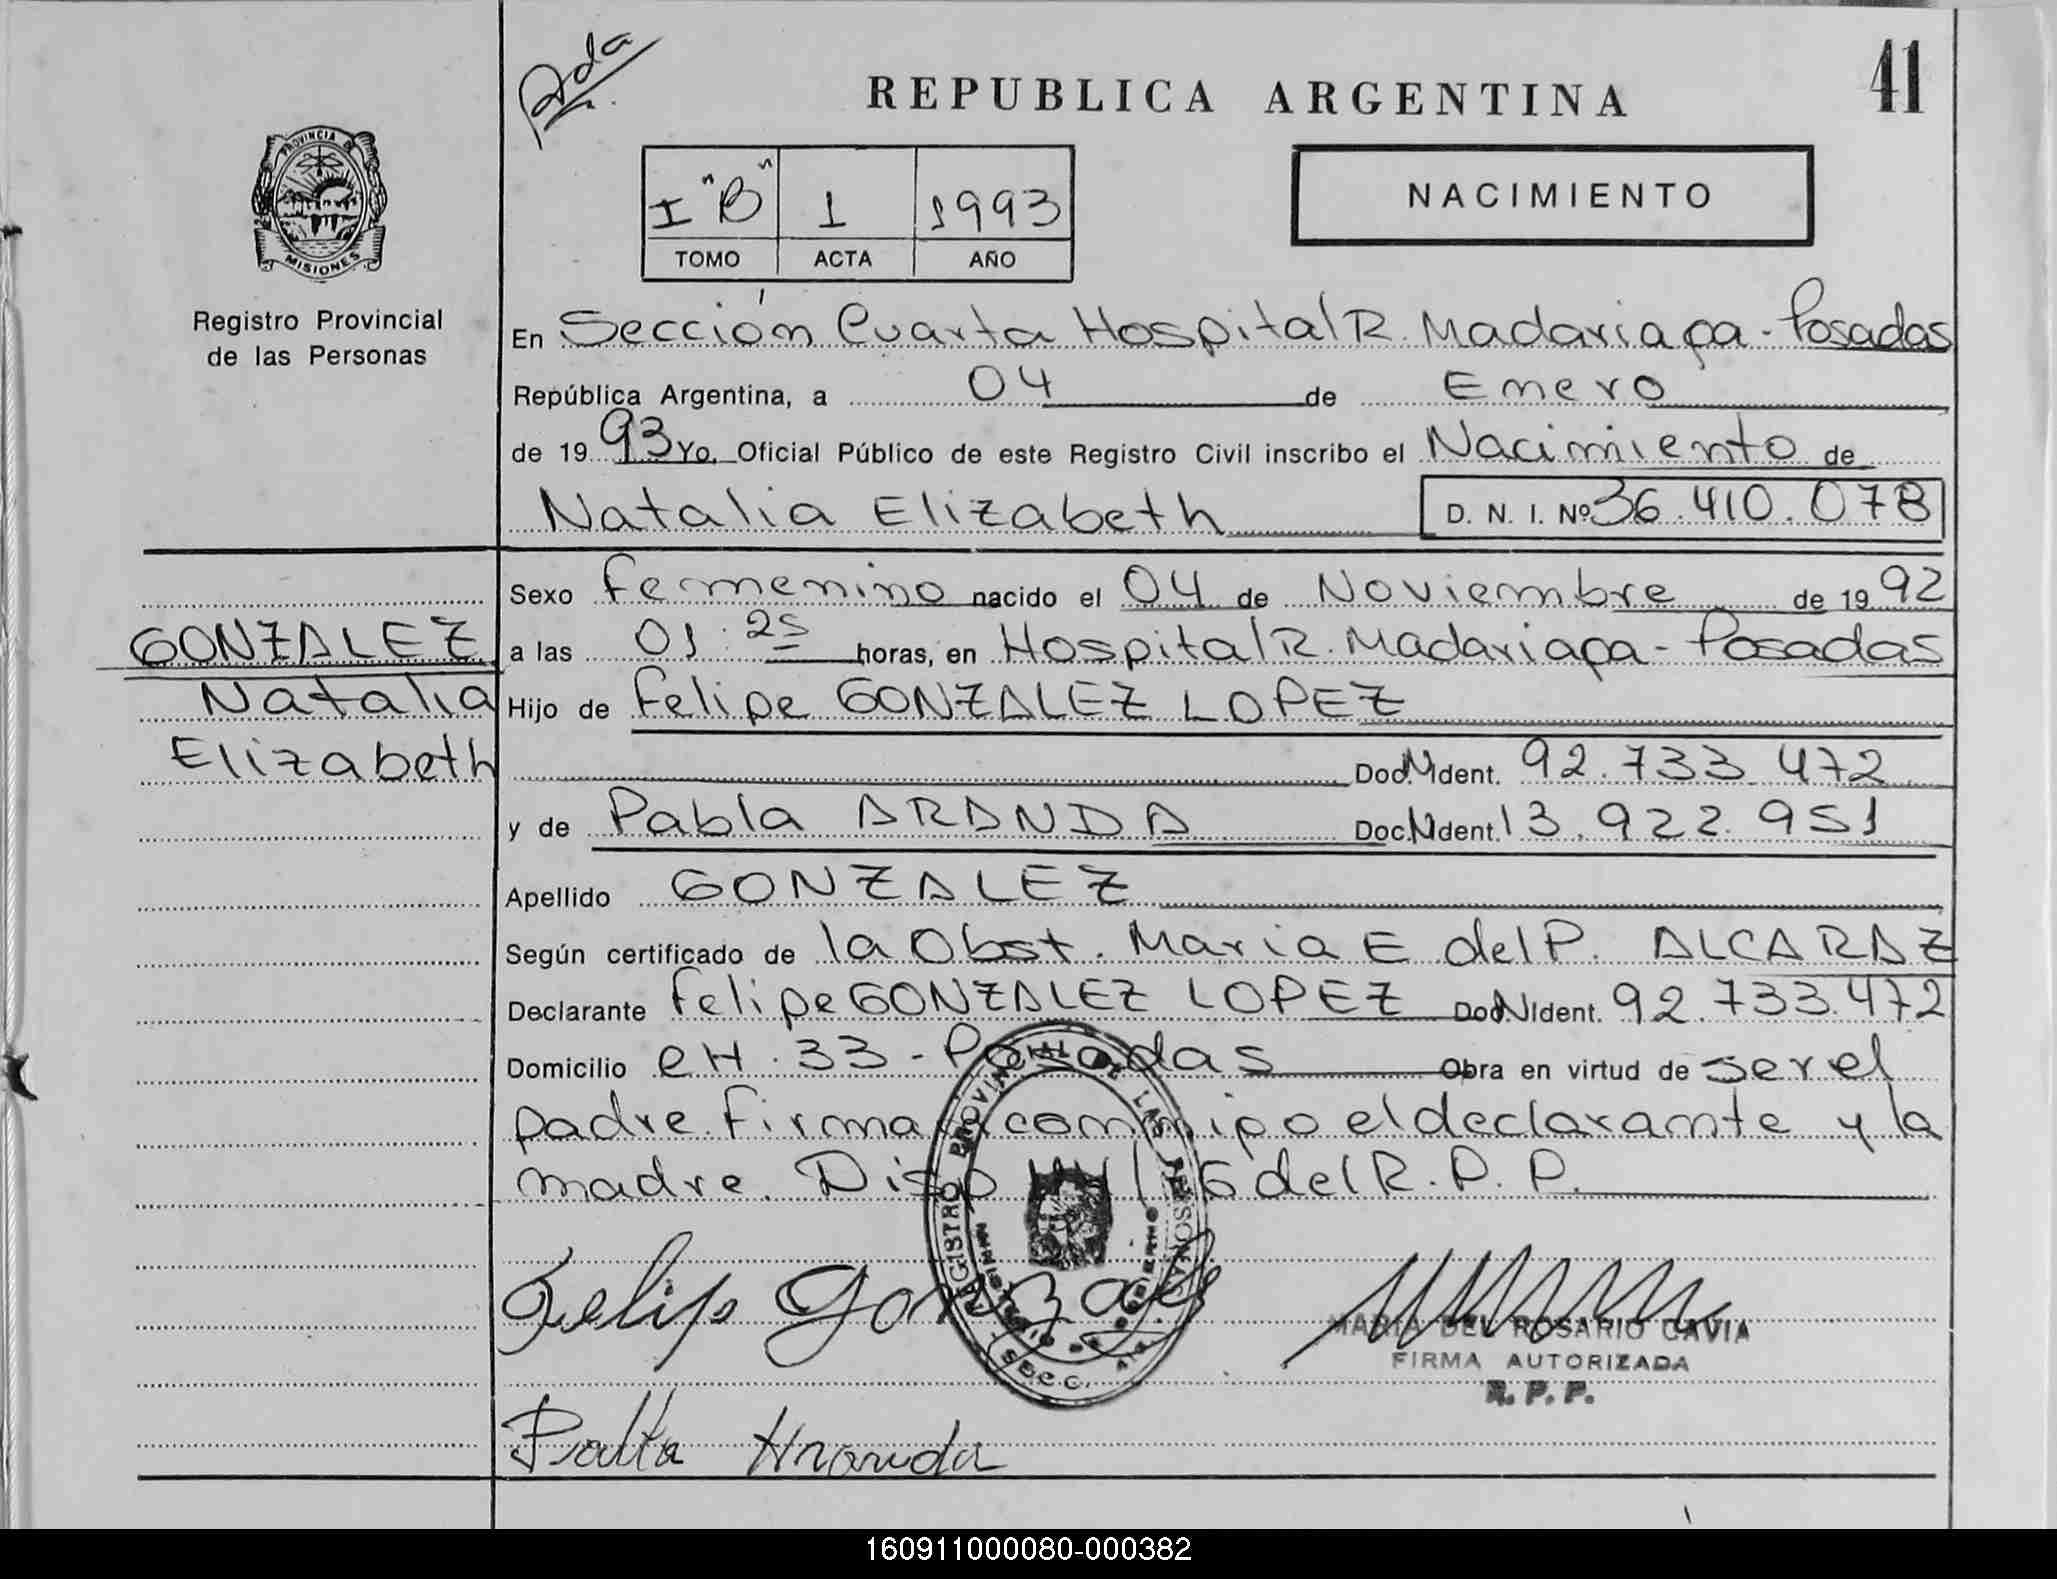 Ada
REPUBLICA ARGENTINA
41
PROVINCIA DE
MISIONES
Registro Provincial
de las Personas
I "B" 1 1993
TOMO ACTA AÑO
NACIMIENTO
En Sección Cuarta Hospital R. Madariaga - Posadas
República Argentina, a 04 de Enero
de 19 93 Yo, Oficial Público de este Registro Civil inscribo el Nacimiento de
Natalia Elizabeth D. N. I. Nº 36.410.078
Sexo femenino nacido el 04 de Noviembre de 19 92
GONZALEZ
Natalia
Elizabeth
a las 01:25 horas, en Hospital R. Madariaga - Posadas
Hijo de Felipe GONZALEZ LOPEZ
Doc. Ident. 92.733.472
y de Pabla ARANDA Doc. Ident. 13.922.951
Apellido GONZALEZ
Según certificado de la Obst. Maria E del P. ALCARAZ
Declarante Felipe GONZALEZ LOPEZ Doc. Ident. 92.733.472
Domicilio CH. 33 - Posadas Obra en virtud de ser el
padre. Firman conmigo el declarante y la
madre. Disp del R. P. P.
REGISTRO PROVINCIAL DE LAS PERSONAS
Felipe Gonzalez
MARIA DEL ROSARIO CAVIA
FIRMA AUTORIZADA
R. P. P.
Aranda
160911000080-000382